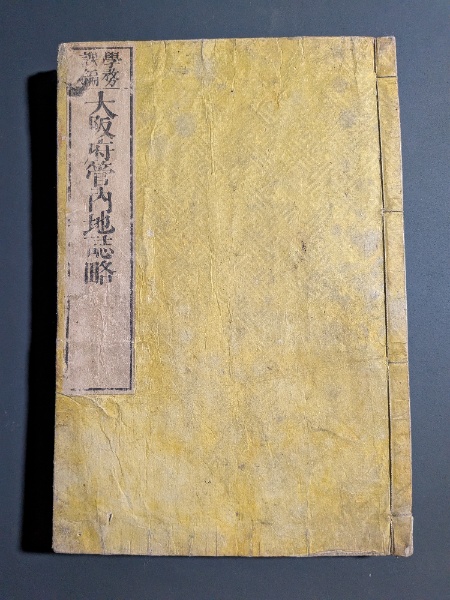 學務
課編
大阪府管内地誌略